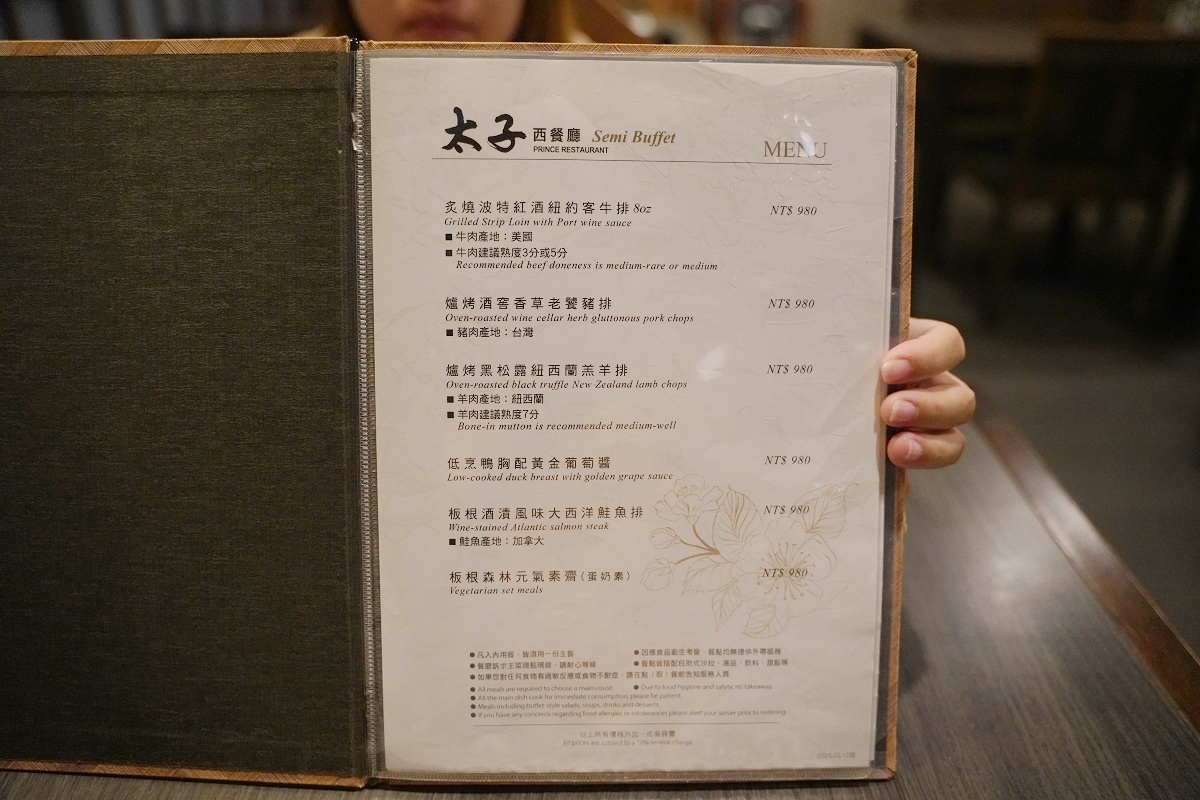 太子 西餐廳 Semi Buffet
PRINCE RESTAURANT
MENU
炙燒波特紅酒紐約客牛排 8oz NT$ 980
Grilled Strip Loin with Port wine sauce
■ 牛肉產地：美國
■ 牛肉建議熟度3分或5分
Recommended beef doneness is medium-rare or medium
爐烤酒窖香草老饕豬排 NT$ 980
Oven-roasted wine cellar herb gluttonous pork chops
■ 豬肉產地：台灣
爐烤黑松露紐西蘭羔羊排 NT$ 980
Oven-roasted black truffle New Zealand lamb chops
■ 羊肉產地：紐西蘭
■ 羊肉建議熟度7分
Bone-in mutton is recommended medium-well
低烹鴨胸配黃金葡萄醬 NT$ 980
Low-cooked duck breast with golden grape sauce
板根酒漬風味大西洋鮭魚排 NT$ 980
Wine-stained Atlantic salmon steak
■ 鮭魚產地：加拿大
板根森林元氣素齋（蛋奶素） NT$ 980
Vegetarian set meals
● 凡入內用餐，皆須用一份主餐 ● 因應食品衛生考量，餐點均無提供外帶服務
● 餐廳訴求主菜現點現做，請耐心等候 ● 餐點皆搭配自助式沙拉、湯品、飲料、甜點等
● 如果您對任何食物有過敏反應或食物不耐症，請在點（取）餐前告知服務人員
● All meals are required to choose a main couse. ● Due to food hygiene and safety, no takeaway.
● All the main dish cook for immediate consumption, please be patient.
● Meals including buffet-style salads, soups, drinks and desserts.
● If you have any concerns regarding food allergies or intolerances please alert your server prior to ordering.
以上所有價格另加一成服務費
All prices are subject to a 10% service charge.